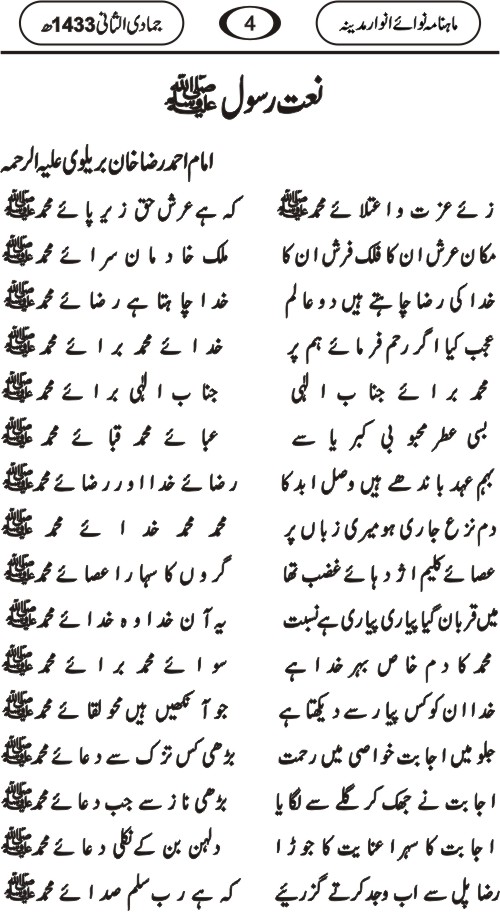 ماہنامہ نوائے انوار مدینہ 4 جمادی الثانی 1433ھ
نعت رسول ﷺ
امام احمد رضا خان بریلوی علیہ الرحمہ
زہے عزت و اعتلائے محمد ﷺ کہ ہے عرش حق زیر پائے محمد ﷺ
مکان عرش ان کا فلک فرش ان کا ملک خادمان سرائے محمد ﷺ
خدا کی رضا چاہتے ہیں دو عالم خدا چاہتا ہے رضائے محمد ﷺ
عجب کیا اگر رحم فرمائے ہم پر خدائے محمد برائے محمد ﷺ
محمد برائے جناب الٰہی جناب الٰہی برائے محمد ﷺ
بسی عطر محبوبی کبریا سے عبائے محمد قبائے محمد ﷺ
بہم عہد باندھے ہیں وصل ابد کا رضائے خدا اور رضائے محمد ﷺ
دم نزع جاری ہو میری زباں پر محمد محمد خدائے محمد ﷺ
عصائے کلیم اژدہائے غضب تھا گروں کا سہارا عصائے محمد ﷺ
میں قربان گیا پیاری پیاری ہے نسبت یہ آن خدا وہ خدائے محمد ﷺ
محمد کا دم خاص بہر خدا ہے سوائے محمد برائے محمد ﷺ
خدا ان کو کس پیار سے دیکھتا ہے جو آنکھیں ہیں محو لقائے محمد ﷺ
جلو میں اجابت خواصی میں رحمت بڑھی کس تزک سے دعائے محمد ﷺ
اجابت نے جھک کر گلے سے لگایا بڑھی ناز سے جب دعائے محمد ﷺ
اجابت کا سہرا عنایت کا جوڑا دلہن بن کے نکلی دعائے محمد ﷺ
رضا پل سے اب وجد کرتے گزریئے کہ ہے رب سلم صدائے محمد ﷺ